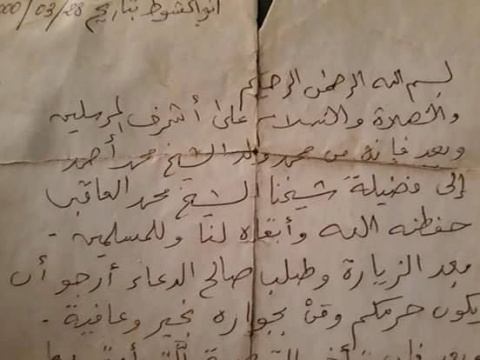 انواكشوط بتاريخ 28/03/2000
بسم الله الرحمن الرحيم
والصلاة والسلام على أشرف المرسلين
وبعد فإنه من محمد ولد الشيخ محمد أحمد
إلى فضيلة شيخنا الشيخ محمد العاقب
حفظه الله وأبقاه لنا وللمسلمين -
بعد الزيارة وطلب صالح الدعاء أرجو أن
يكون حرمكم ومن بجواره بخير وعافية -